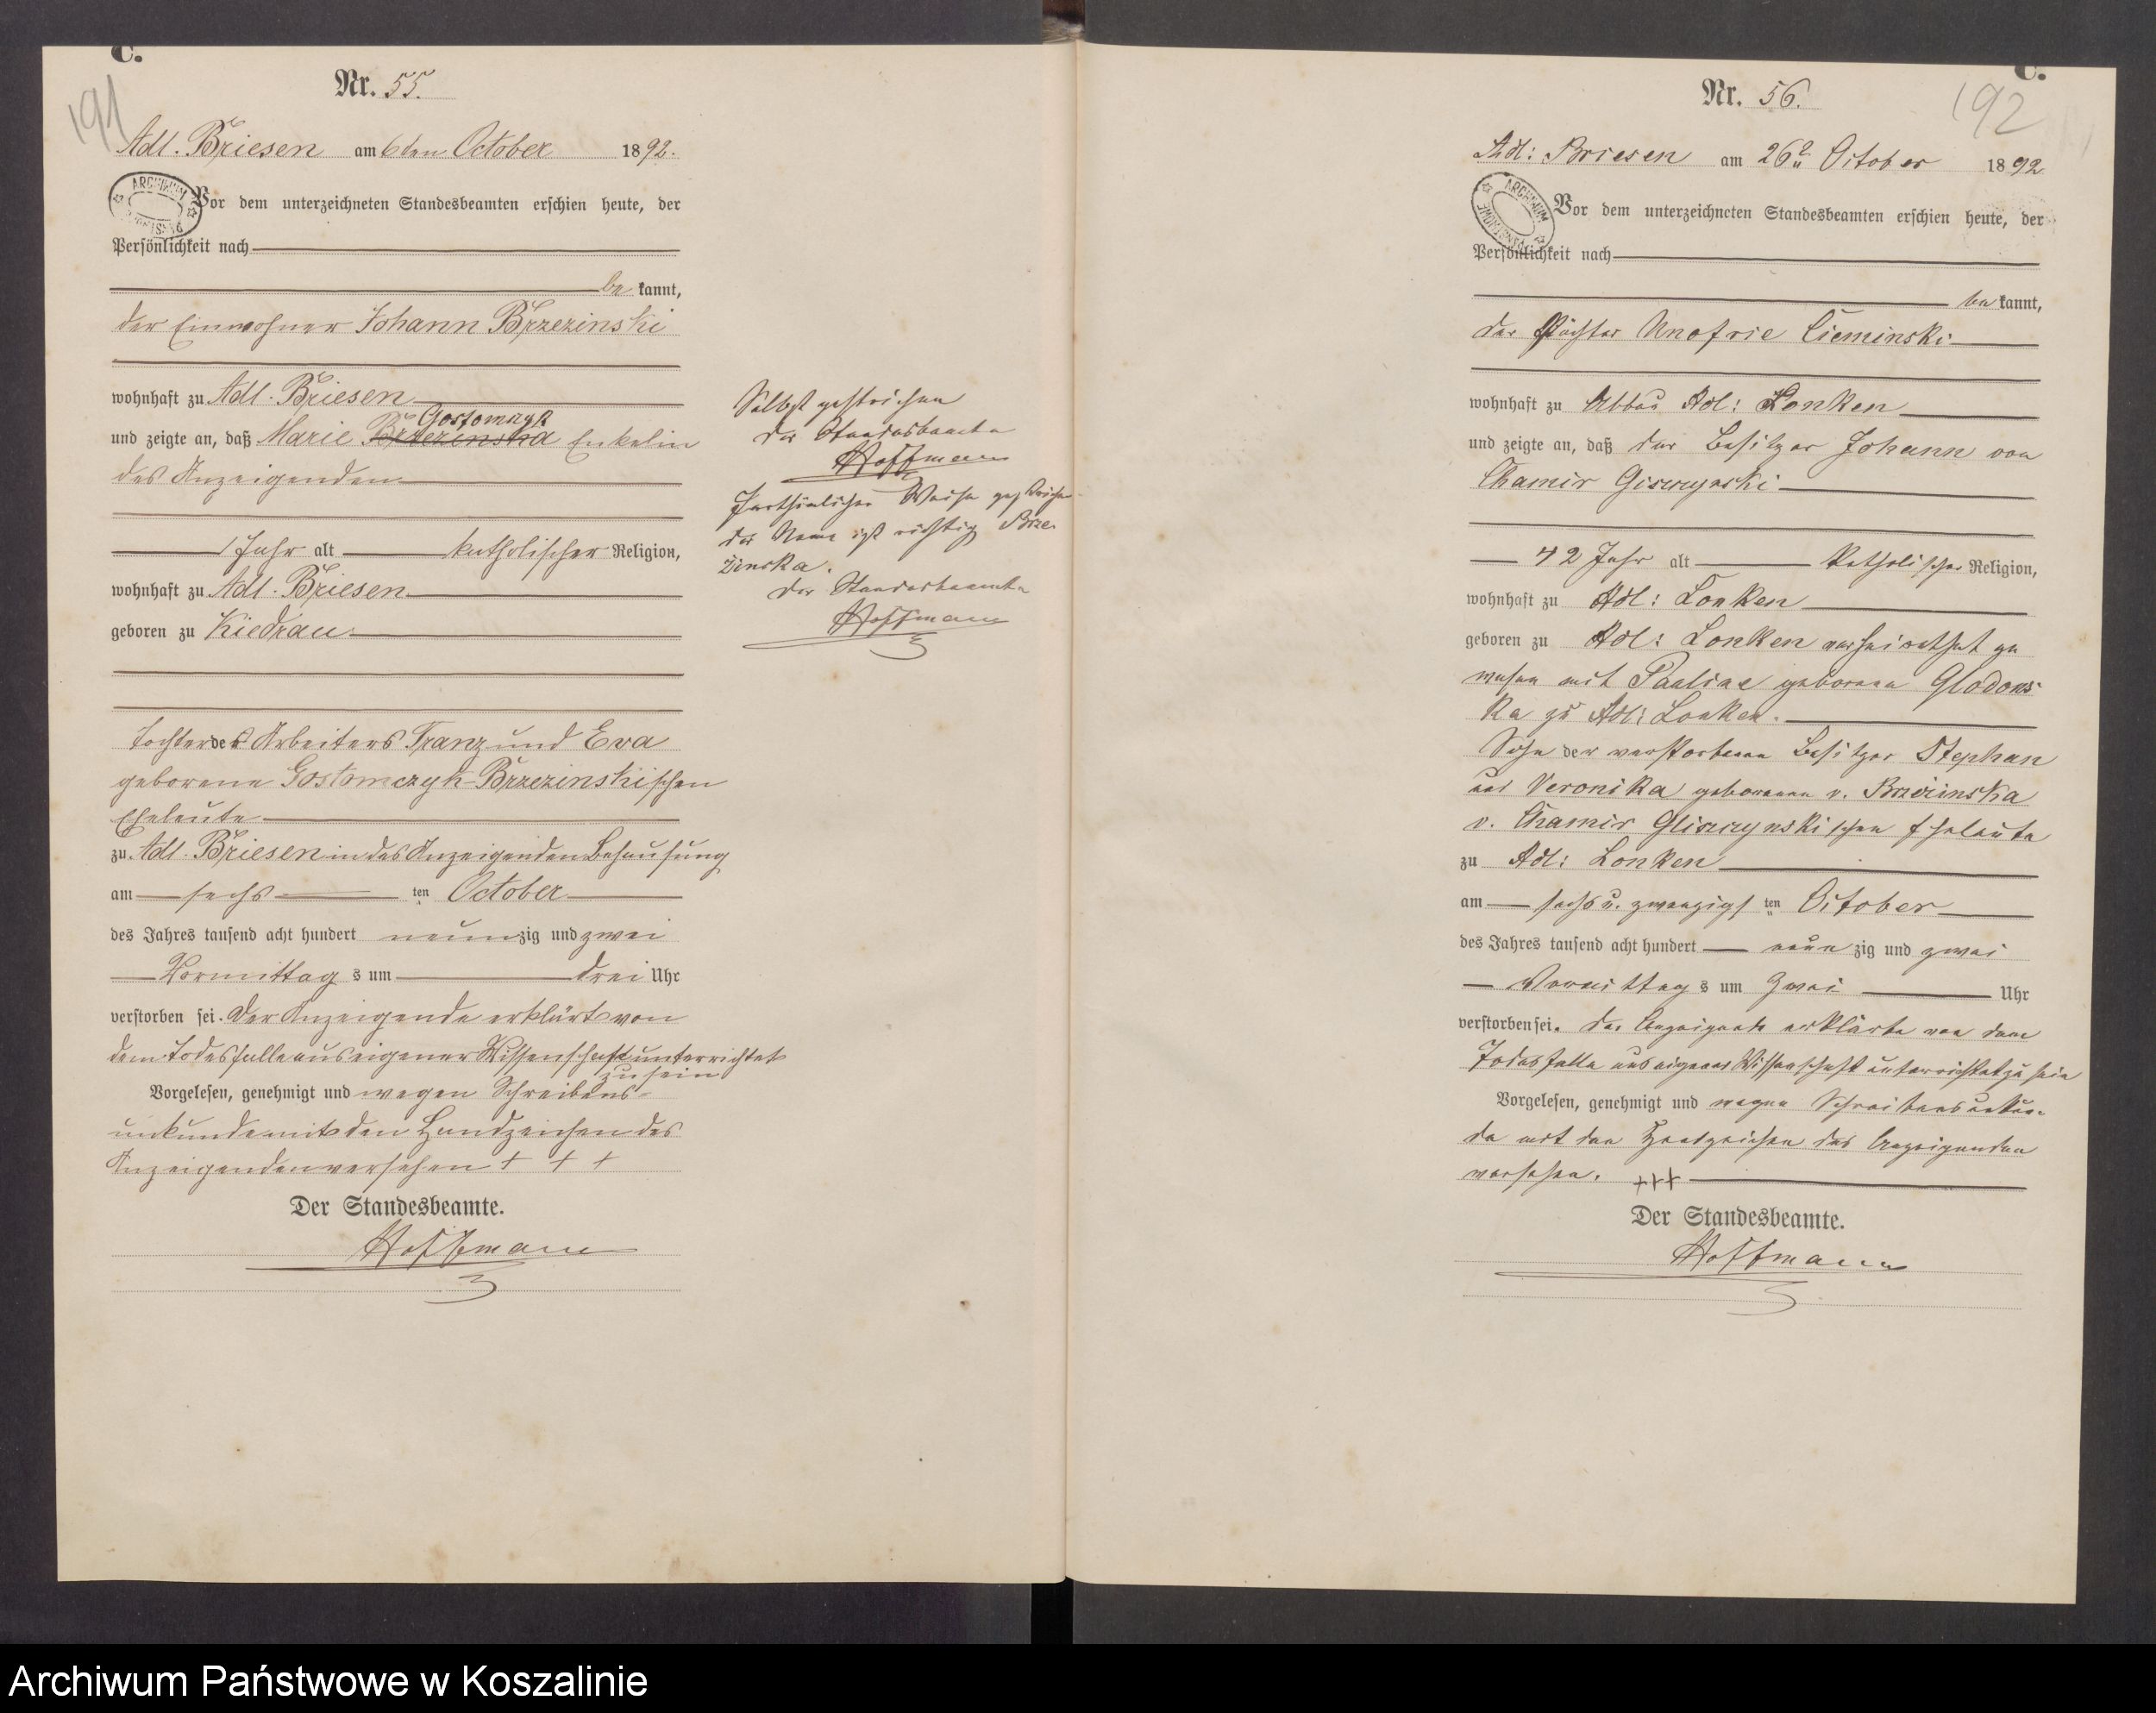 C.
191
Nr. 55.
Adl. Briesen am 6ten October 1892.
ARCHIWUM
Vor dem unterzeichneten Standesbeamten erschien heute, der
Persönlichkeit nach
be kannt,
der Einwohner Johann Brzezinski
wohnhaft zu Adl. Briesen
Gostomzyk
und zeigte an, daß Marie Brzezinska Enkelin
des Anzeigenden
1 Jahr alt katholischer Religion,
wohnhaft zu Adl. Briesen
geboren zu Kiedrau
Tochter des Arbeiters Franz und Eva
geborene Gostomczyk-Brzezinskischen
Eheleute
zu Adl. Briesen in des Anzeigenden Behausung
am sechs ten October
des Jahres tausend acht hundert neunzig und zwei
Vormittag s um drei Uhr
verstorben sei. Der Anzeigende erklärte von
dem Todesfalle aus eigener Wissenschaft unterrichtet
zu sein
Vorgelesen, genehmigt und wegen Schreibens-
unkunde mit den Handzeichen des
Anzeigenden versehen + + +
Der Standesbeamte.
Hoffmann
Selbst gestrichen
Der Standesbeamte
Hoffmann
Irrthümlicher Weise gestrichen
der Name ist richtig Brze-
zinska.
Der Standesbeamte
Hoffmann
C.
192
Nr. 56.
Adl: Briesen am 26 October 1892
ARCHIWUM
Vor dem unterzeichneten Standesbeamten erschien heute, der
Persönlichkeit nach
be kannt,
der Pächter Unofrie Cieminski
wohnhaft zu Abbau Adl: Lonken
und zeigte an, daß der Besitzer Johann von
Chamir
42 Jahr alt katholischer Religion,
wohnhaft zu Adl: Lonken
geboren zu Adl: Lonken verheirathet ge
wesen mit Pauline geborenen Glodows
ka zu Adl: Lonken.
Sohn der verstorbenen Besitzer Stephan
und Veronika geborenen v. Brzezinska
v. Chamir Gliszczynskischen Eheleute
zu Adl: Lonken
am sechs u. zwanzigs ten October
des Jahres tausend acht hundert neun zig und zwei
Vormittag s um Zwei Uhr
verstorben sei. Der Anzeigende erklärte von dem
Todesfalle aus eigener Wissenschaft unterrichtet zu sein
Vorgelesen, genehmigt und wegen Schreibensunkun-
de mit den Handzeichen des Anzeigenden
versehen. +++
Der Standesbeamte.
Hoffmann
Archiwum Państwowe w Koszalinie